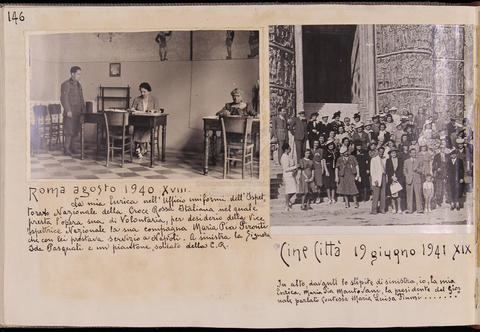 146
Roma agosto 1940 XVIII.
La mia Enrica nell'Ufficio uniformi dell'Ispet,
torato Nazionale della Croce Rossa Italiana nel quale
presta opera sua di Volontaria, per desiderio della Vice
Ispettrice Nazionale la sua compagna Maria Pia Peronti
chi con lei prestava servizio a Napoli. A sinistra la Signora
De Pasquali e un piantone, soldato della C.R.
Cine Città 19 giugno 1941 XIX
In alto, davanti lo stipite di sinistra, io, la mia
Enrica, Maria Pia, la presidente del
parlato Contessa Maria Luisa